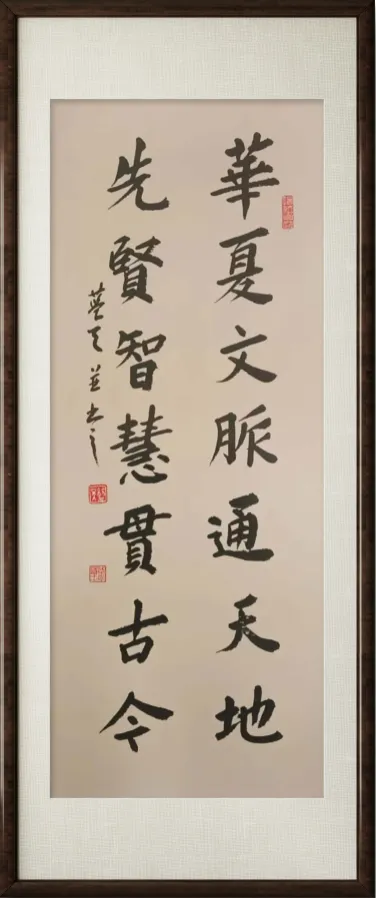 華夏文脈通天地
先賢智慧貫古今